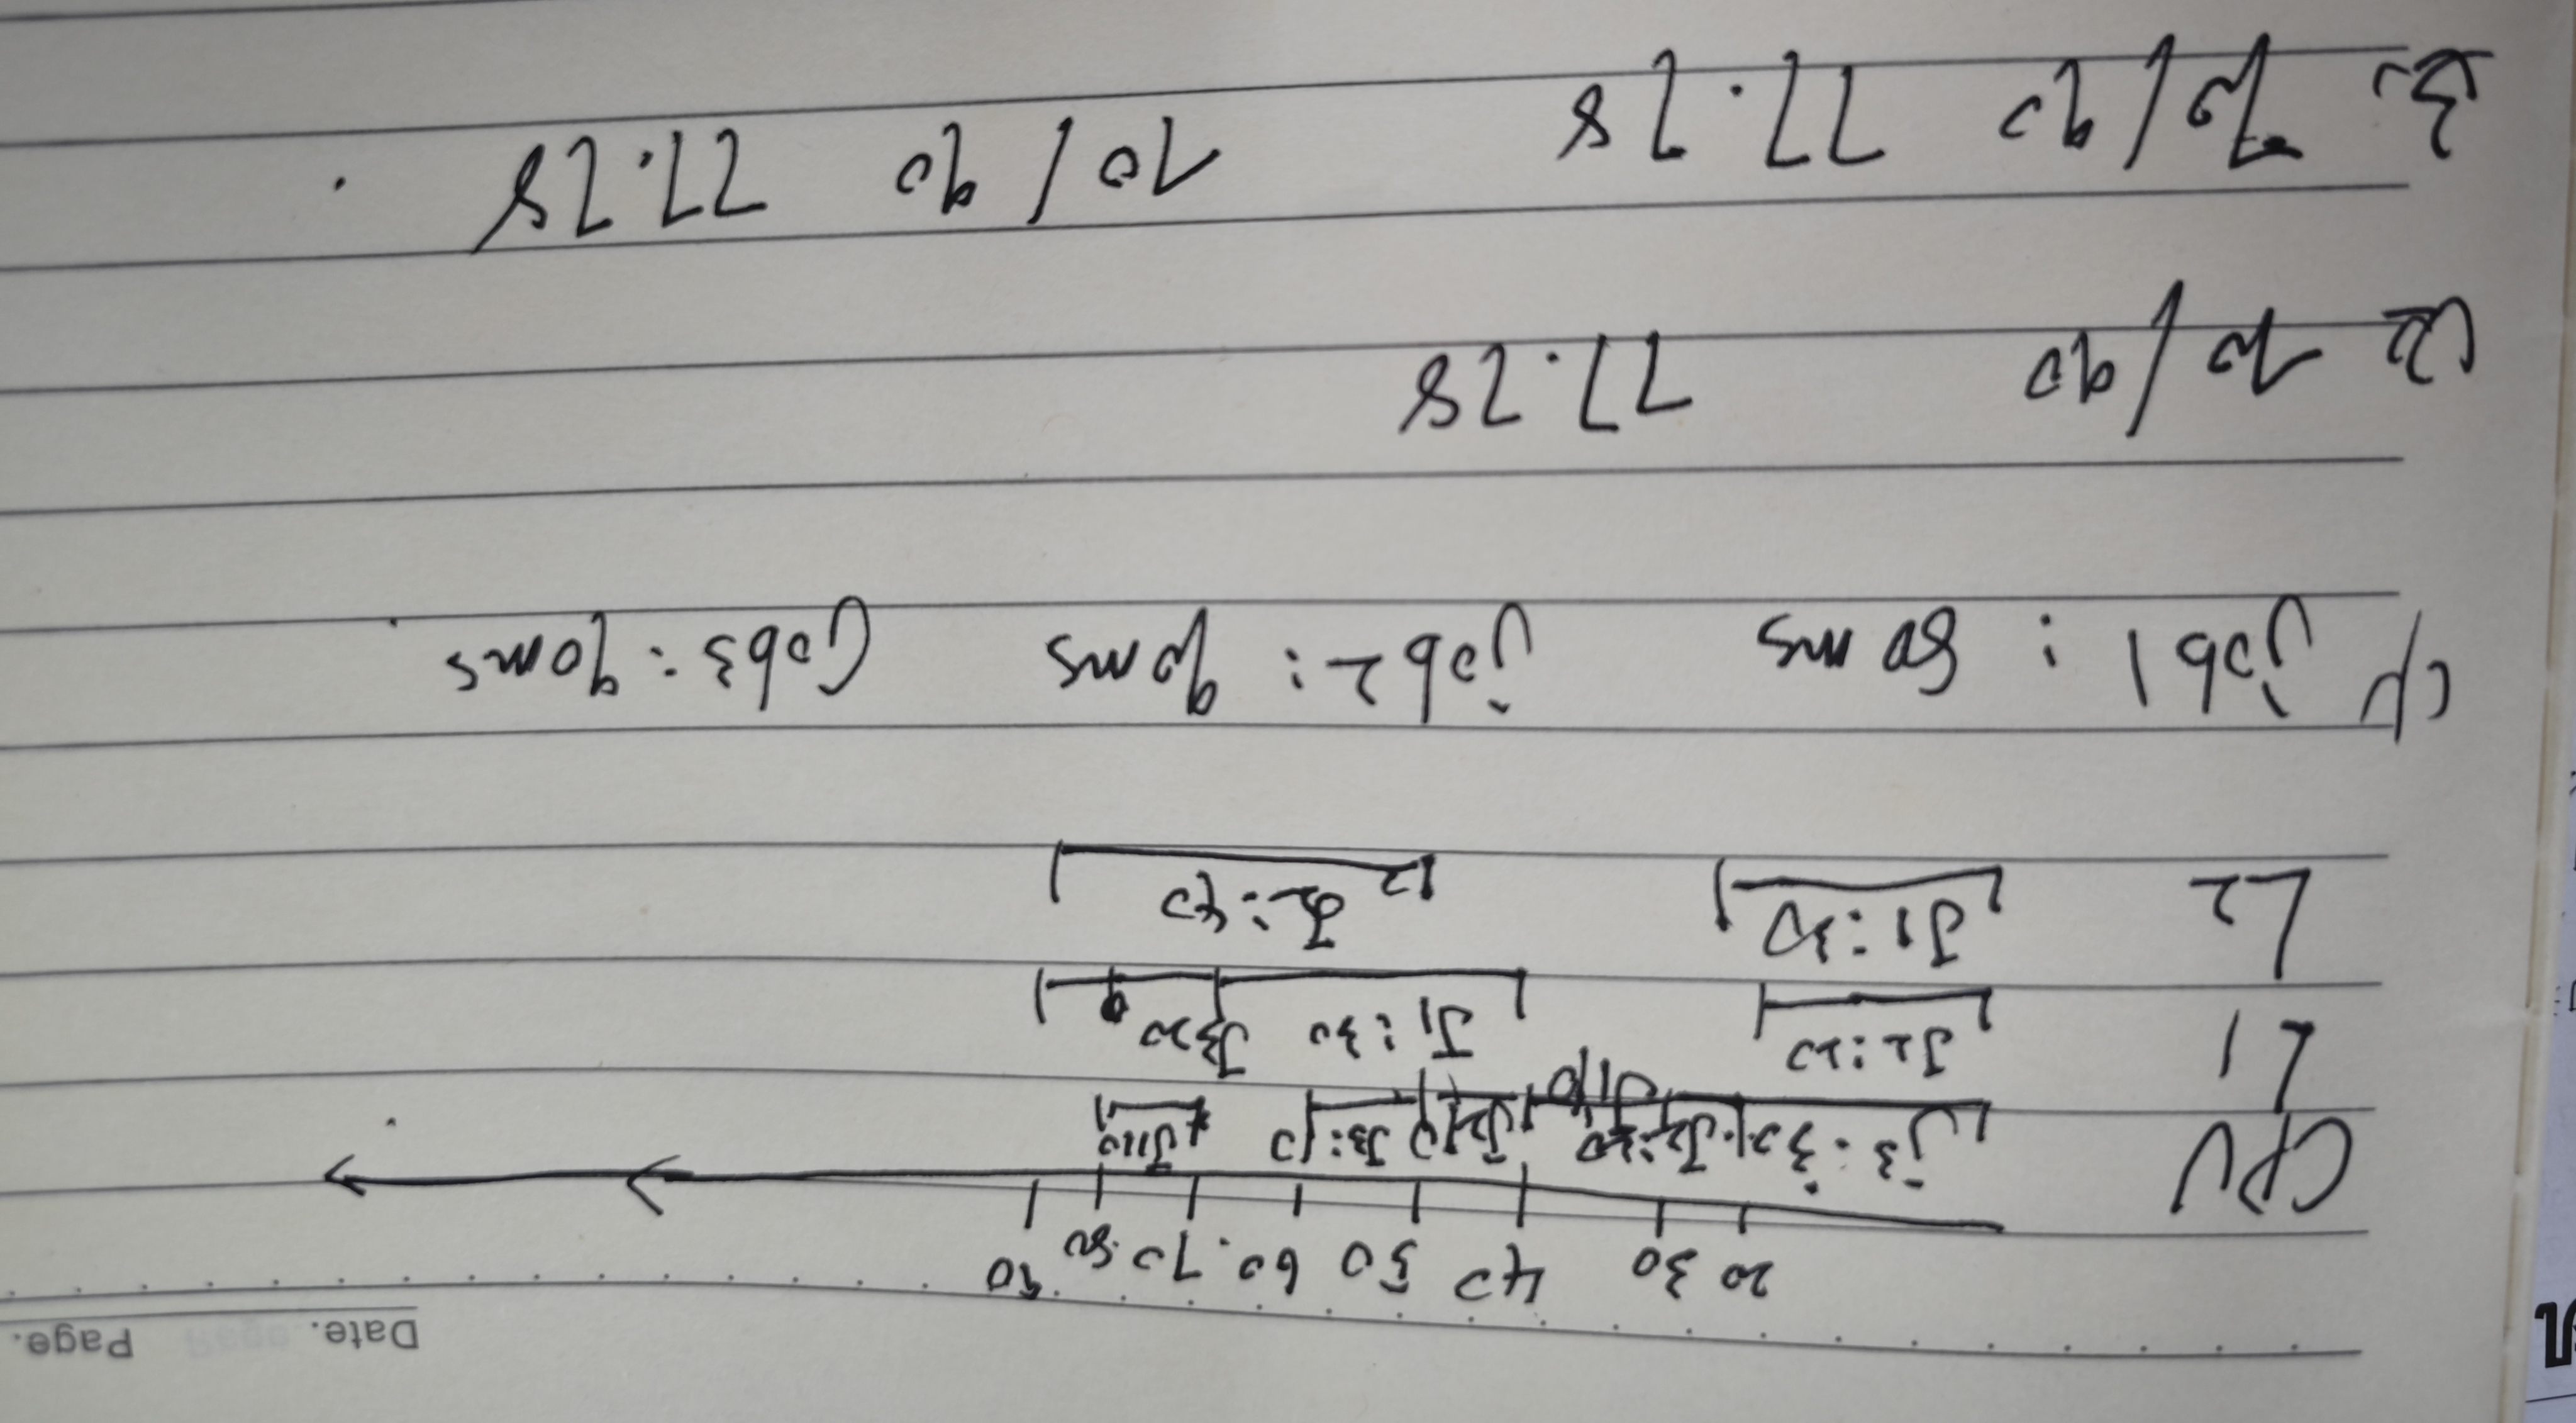 Date. Page.
20 30 40 50 60 70 80 90
CPU J3:30 J2:10 J1:10 J2 J3:10 J1:10
L1 J2:20 J1:30 J3:20
L2 J1:30 J2:40
(1) Job1: 80 ms Job2: 90ms Job3: 90ms
(2) 70/90 77.78
(3) 70/90 77.78
70/90 77.78